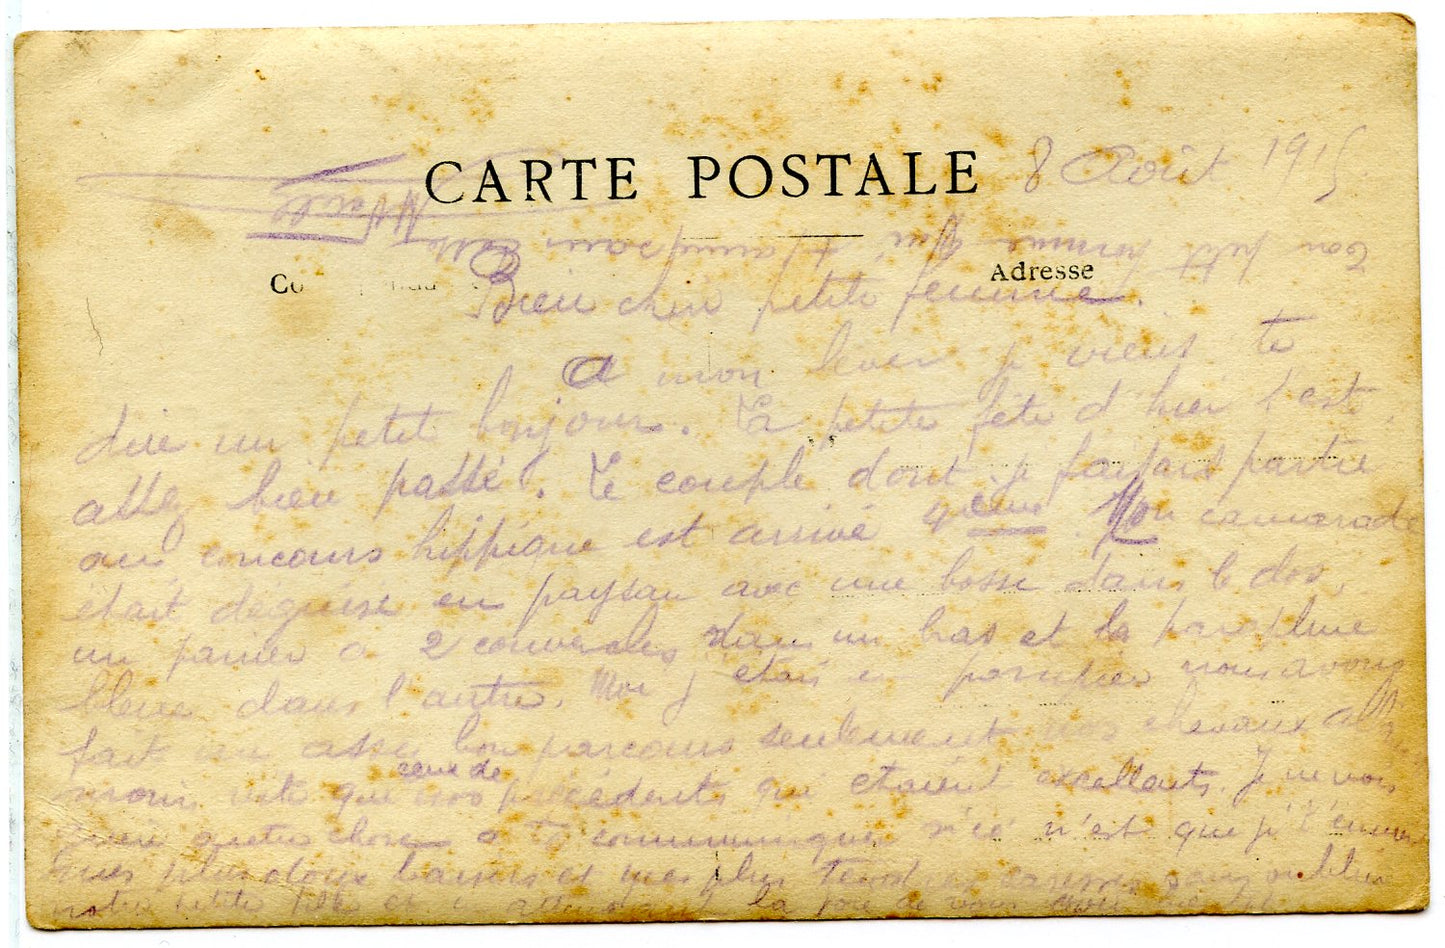 CARTE POSTALE
8 Août 1915
Adresse
Bien cher petite femme.
A mon lever je viens te
dire un petit bonjour. La petite fête d'hier s'est
assez bien passée. Le couple dont je faisais partie
au concours hippique est arrivé 9ème. Mon camarade
était deguisé en paysan avec une bosse dans le dos,
un panier a 2 couvercles dans un bras et la parapluie
bleue dans l'autre. Moi j'etais en pompier nous avons
fait un assez bon parcours seulement nos chevaux
moins vite que ceux de nos précédents qui etaient excellents. Je ne vois
guère autre chose a te communiquer si ce n'est que je t'envoie
mes plus doux baisers et mes plus tendres caresses sans oublier
notre petite fille et en attendant la joie de vous
Ton petit homme qui t'aime